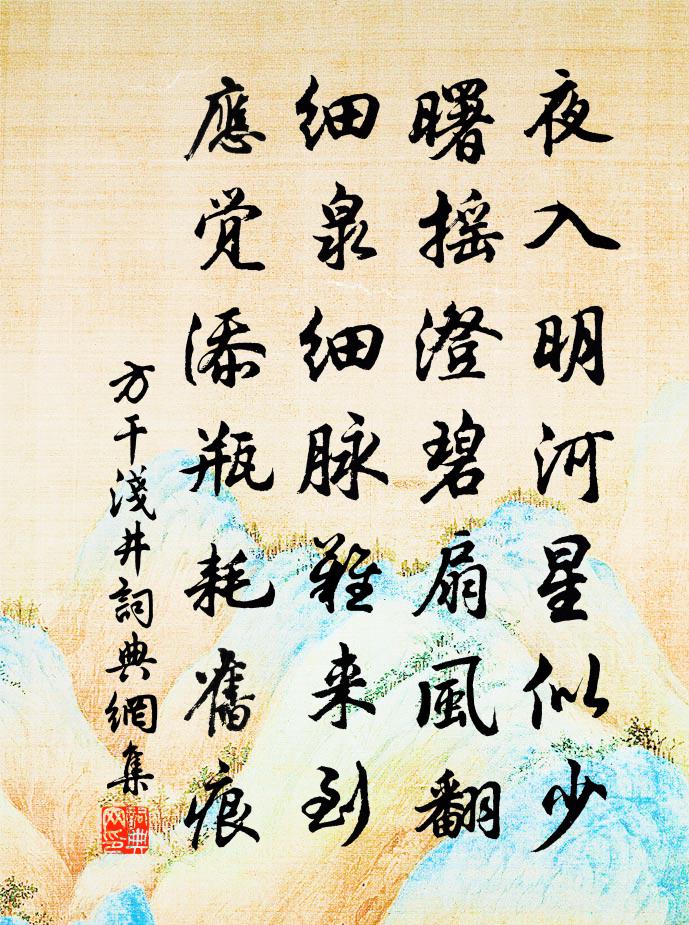 夜入明河星似少
曙摇澄碧扇風翻
細泉細脉難来到
應覚添瓶耗舊痕
方干淺井詞典網集
詞典
网印